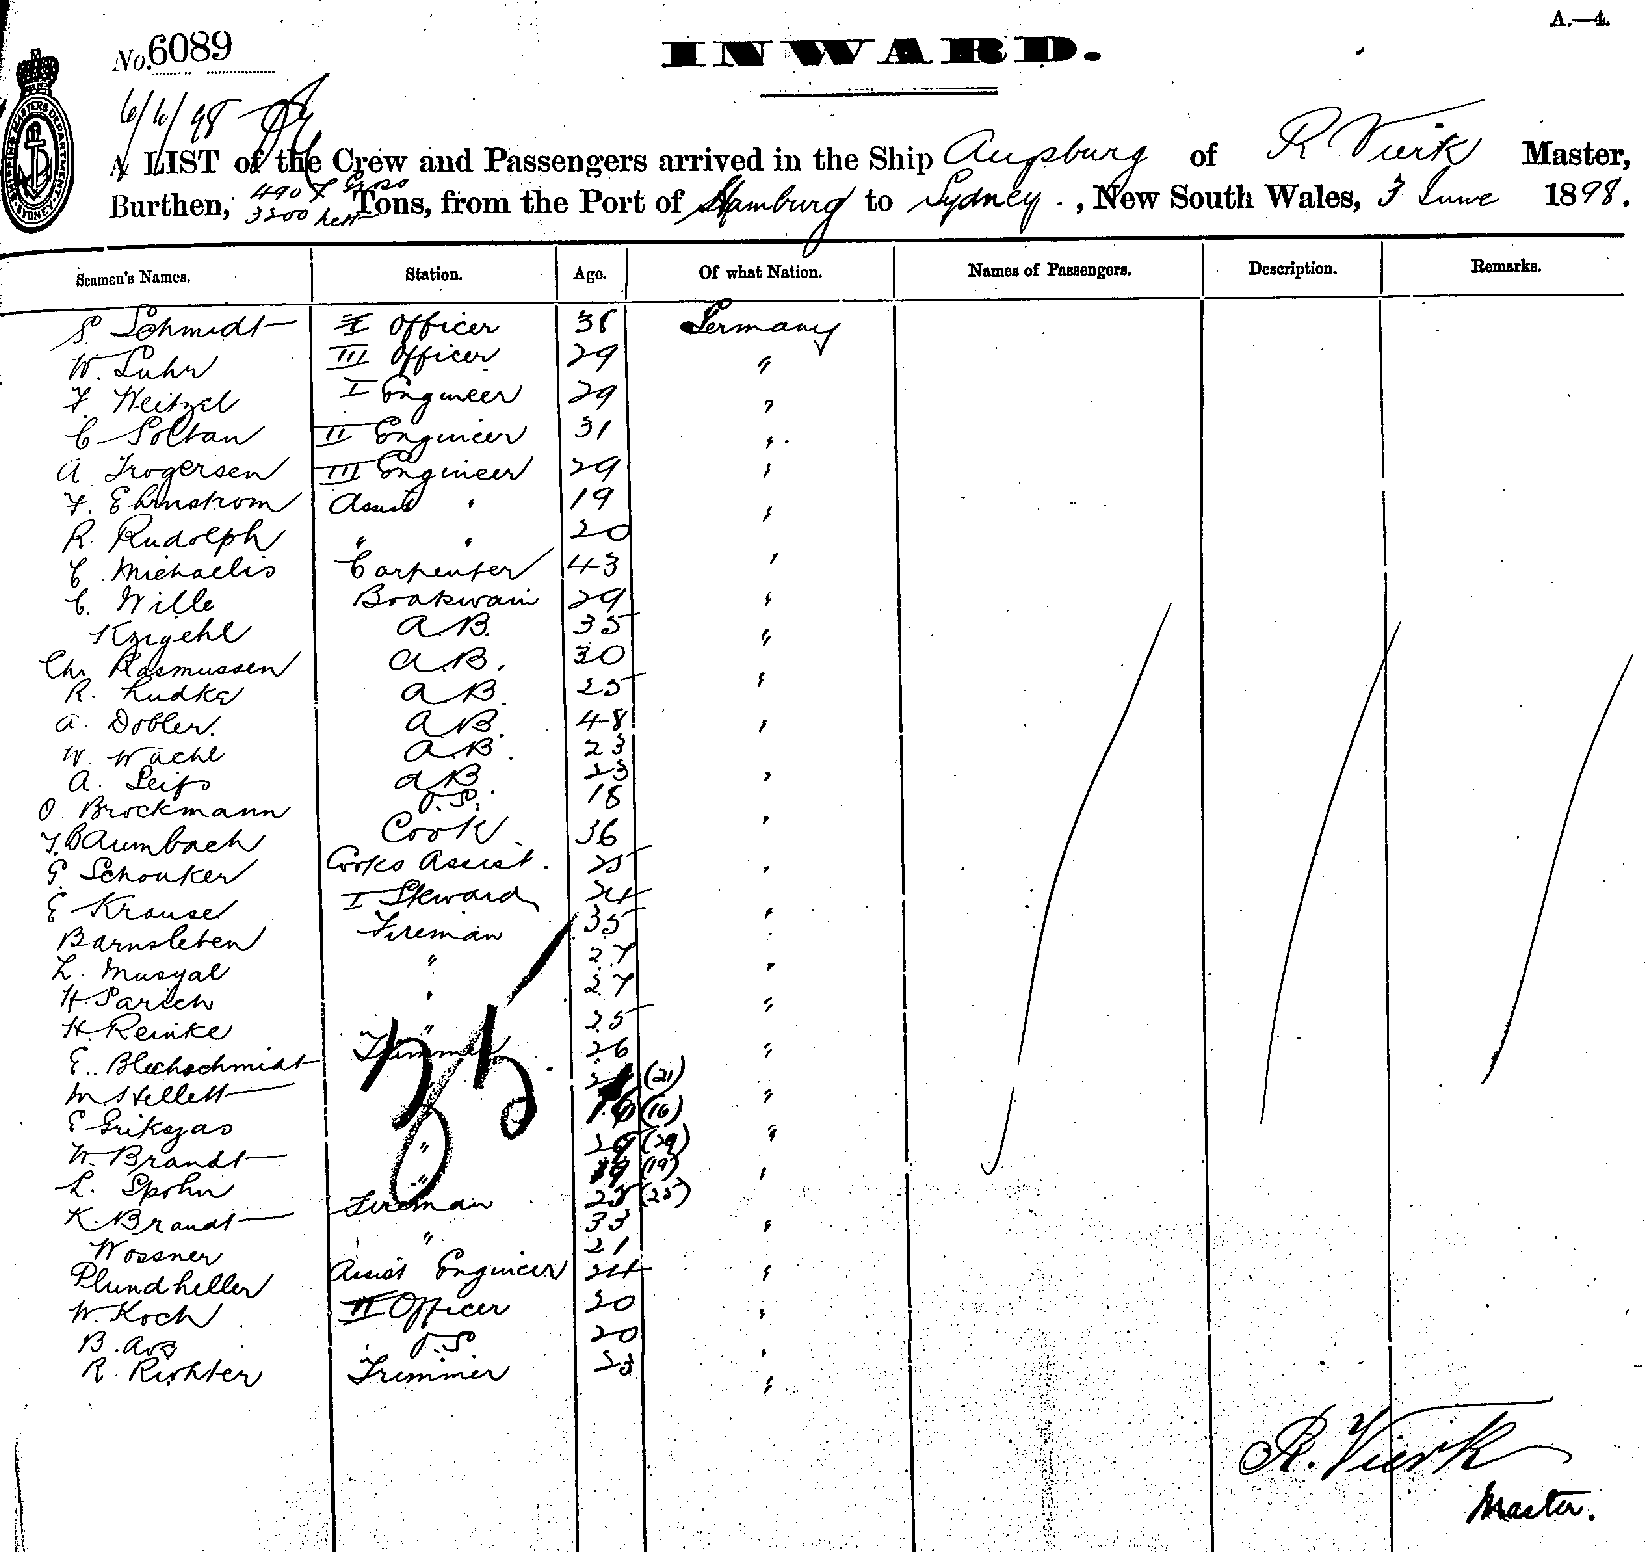 A.—4.
No. 6089
INWARD.
6/6/98
A LIST of the Crew and Passengers arrived in the Ship Augsburg of R Vierk Master,
Burthen, 4907 Gross 3200 nett Tons, from the Port of Hamburg to Sydney., New South Wales, 3 June 1898.
Seamen's Names. Station. Age. Of what Nation. Names of Passengers. Description. Remarks.
S. Schmidt I Officer 38 Germany
W. Luhr III Officer 29 "
F. Weitzel I Engineer 29 "
C Soltan II Engineer 31 "
A Trogersen III Engineer 29 "
F. Ehrnstrom Assist " 19 "
R. Rudolph " " 20
C. Michaelis Carpenter 43 "
C. Wille Boatswain 29 "
Krigehl A B. 35 "
Chr Rasmussen A B. 30
R. Ludke A B. 25 "
A. Dobler. A B. 48 "
W. Wachl A B. 23
A. Seifs A B. 23 "
O Brockmann O.S. 18
F. Baumbach Cook 36 "
G. Schouker Cooks Assist. 25 "
E Krause I Steward 24
Barnsleben Fireman 35 "
L. Musyal " 27
H. Parsch " 27 "
H. Reinke " 25 "
E. Blechschmidt Trimmer 26 "
M Hellett (21) "
E Grikszas 16 (16)
W. Brandt " 29 (29) "
L. Spohn " 19 (19) "
K. Brandt Fireman 25 (25)
Wossner " 33 "
Plundheller 21
W. Koch Assist Engineer 24 "
B. II Officer 30 "
R. Richter O.S. 20 "
Trimmer 23 "
R. Vierk
Master.